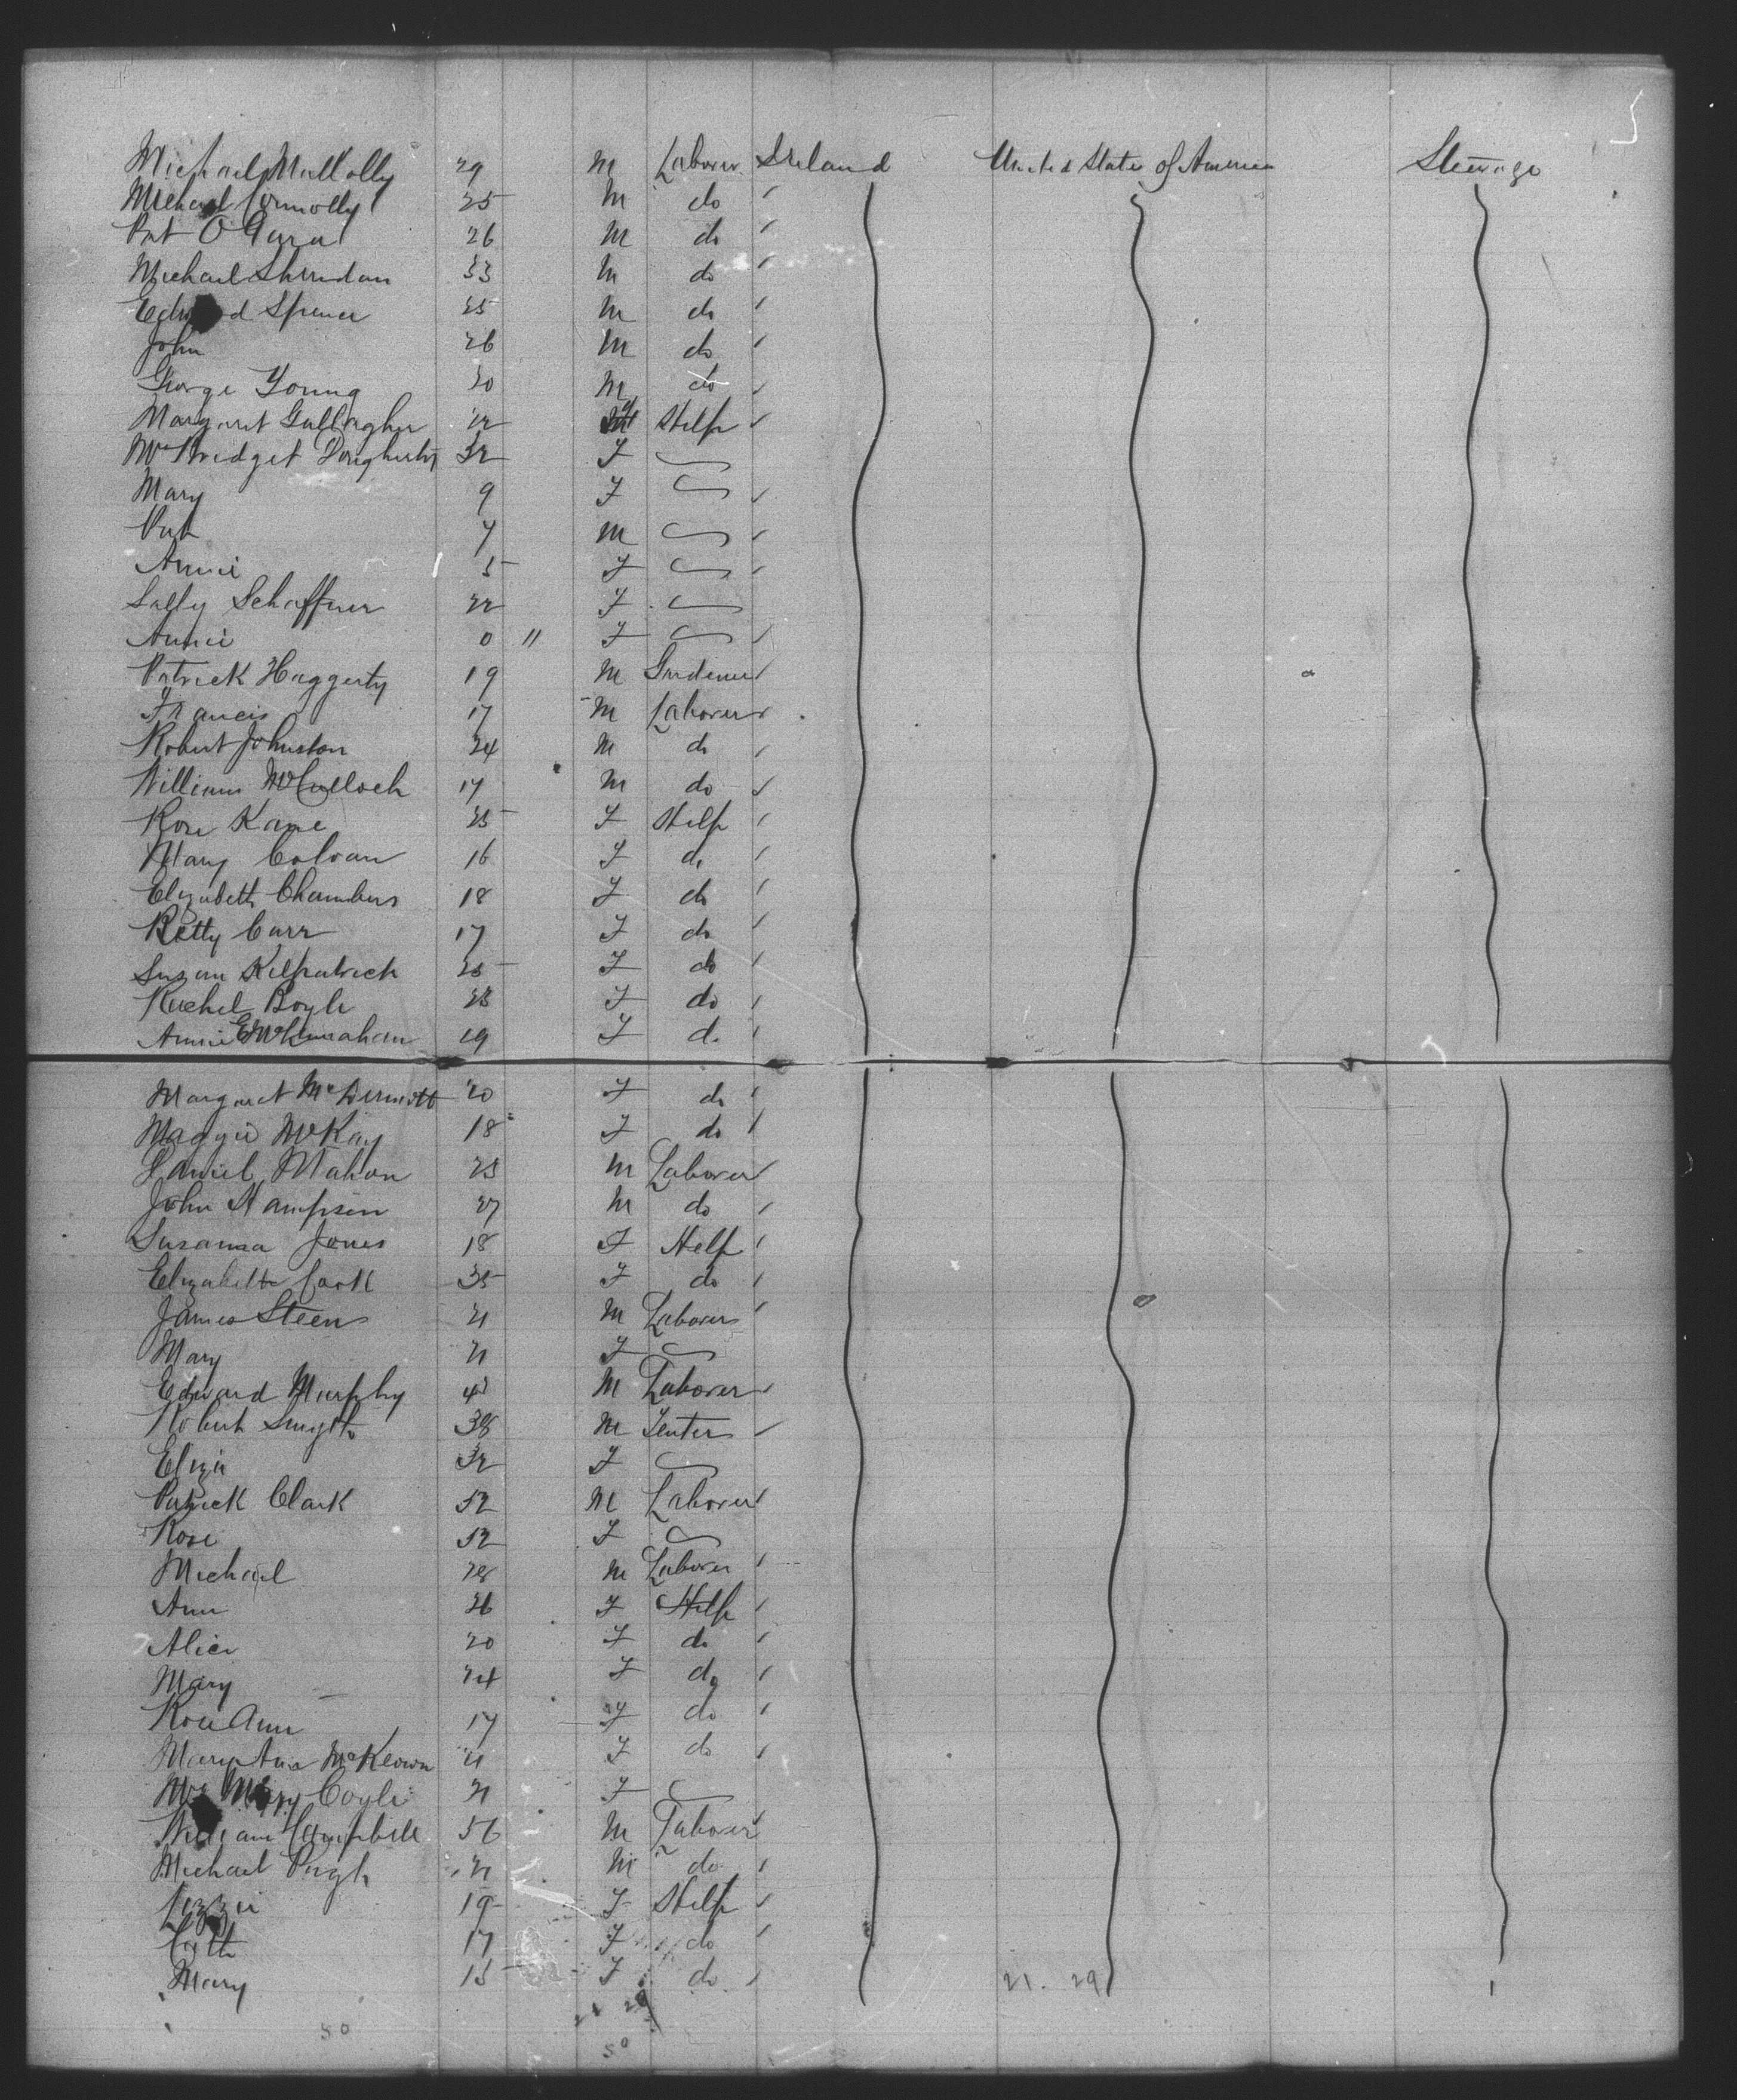 5
Michael Mullolly 29 M Laborer Ireland United States of America Steerage
Michael Connolly 25 M do "
Pat O'Gara 26 M do "
Michael Sheridan 33 M do "
Edward Spencer 25 M do "
John 26 M do "
George Young 30 M do "
Margaret Gallagher 22 F Help "
Mrs Bridget Dougherty 32 F
Mary 9 F "
Pat 7 M "
Annie 5 F "
Sally Schaffner 22 F
Annie 0 11 F "
Patrick Haggerty 19 M Gardener "
Francis 17 M Laborer "
Robert Johnston 24 M do "
William McCulloch 17 M do "
Rose Kane 25 F Help "
Mary Colvan 16 F do "
Elizabeth Chambers 18 F do "
Betty Carr 17 F do "
Susan Kilpatrick 25 F do "
Rachel Boyle 23 F do "
Annie 19 F do "
Margaret McDermott 20 F do "
Maggie McKay 18 F do "
Daniel Mahon 23 M Laborer "
John Hampson 27 M do "
Susanna Jones 18 F Help "
Elizabeth Cook 35 F do "
James Steen 21 M Laborer "
Mary 21 F
Edward Murphy 43 M Laborer "
Robert Smyth 38 M Tenter "
Eliza 32 F
Patrick Clark 52 M Laborer "
Rose 52 F
Michael 28 M Laborer "
Ann 26 F Help "
Alice 20 F do "
Mary 24 F do "
Rose Ann 17 F do "
Mary Ann McKeown 21 F do "
Mrs Mary Coyle 21 F
William Campbell 56 M Laborer "
Michael Pugh 21 M do "
Lizzie 19 F Help "
Cath 17 F do "
Mary 15 F do " 21. 29
21 29
50
50